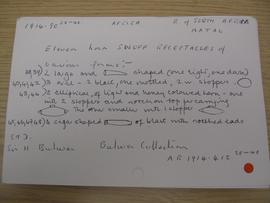 1914-90 38-48 AFRICA R of SOUTH AFRICA
NATAL
Eleven horn SNUFF RECEPTACLES of
various forms:-
38,39) 2 large and shaped (one light, one dark)
40,41,42) 3 oval - 2 black, one mottled, 2 w. stoppers
43,44) 2 elliptical, of light and honey coloured horn - one
with 2 stoppers and notch on top for carrying
The one smaller with 1 stopper
45,46,47,48) 4 cigar shaped of black with notched ends
STD.
Sir H Bulwer Bulwer Collection
AR 1914.4.12 38-48